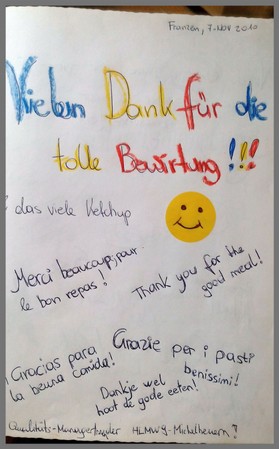 Franzen, 7. Nov 2010
Vielen Dank für die
tolle Bewirtung!!!
das viele Ketchup
Merci beaucoup, pour
le bon repas!
Thank you for the
good meal!
¡Gracias para
la beuna comida!
Grazie per i pasti
benissimi!
Dankje wel
hoot de gode eeten!
Qualitäts-Manager HLMWJ-Michelbeuern